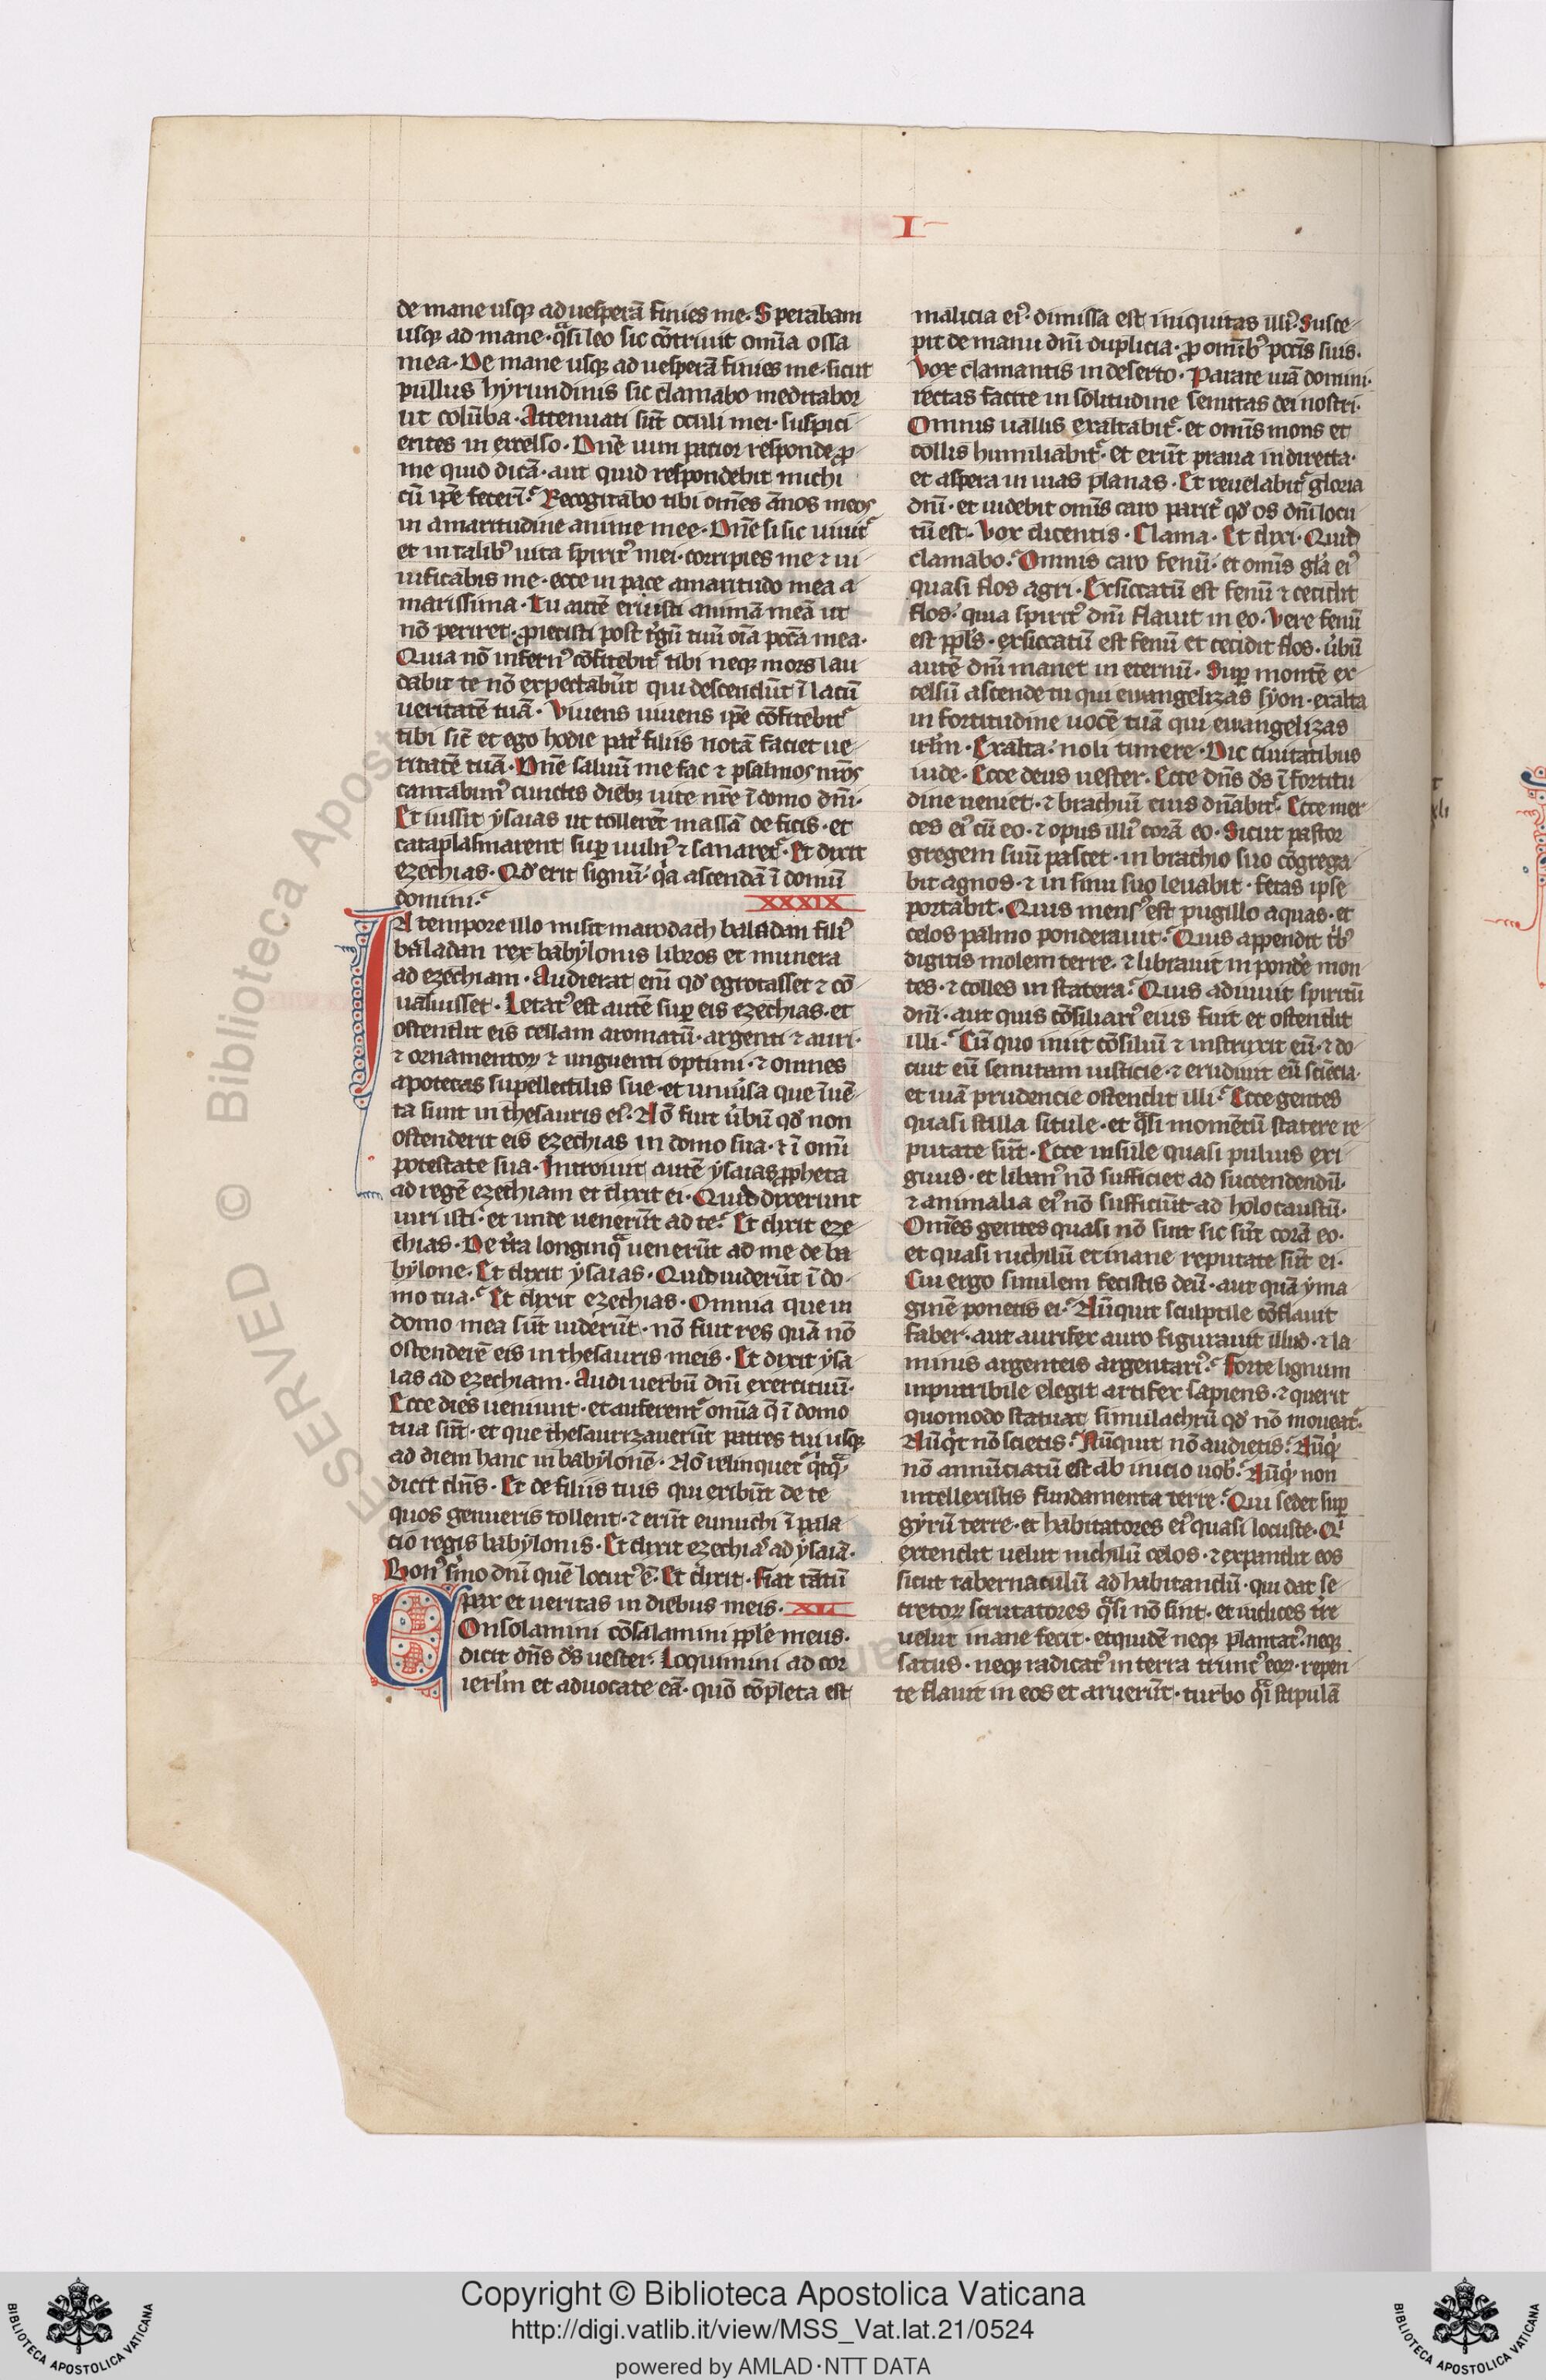 I
de mane usq ad uesperā finies me. Sperabam
usq ad mane · qͣsi leo sic cōtriuit omīa ossa
mea · De mane usq ad uesperā finies me · sicut
pullus hyrundinis sic clamabo meditabor
ut colūba · Attenuati sūt oculi mei · suspici
entes in excelso · Dn̄e uim patior responde ꝓ
me quid dicā · aut quid respondebit michi
cū ip̄e fecerit Recogitabo tibi om̄es ānos meos
in amaritudine anime mee · Dn̄e si sic uiuit᷑
et in talibꝰ uita spiritꝰ mei · corripies me ⁊ ui
uificabis me · ecce in pace amaritudo mea a
marissima · Tu autē eruisti animā meā ut
nō periret · ꝓiecisti post t᷑gū tuū oīa pccā mea ·
Quia nō infernꝰ cōfitebit᷑ tibi neq mors lau
dabit te nō expectabūt qui descendūt ī lacū
ueritatē tuā · Viuens uiuens ip̄e cōfitebit᷑
tibi sic̄ et ego hodie pat᷑ filiis notā faciet ue
ritatē tuā · Dn̄e saluū me fac ⁊ psalmos nr̄os
cantabimꝰ cunctis diebꝫ uite nr̄e ī domo dn̄i ·
Et iussit ysaias ut tollerēt massā de ficis · et
cataplasmarent sup uulnꝰ ⁊ sanaret᷑ · Et dixit
ezechias · Qd erit signū · qͥa ascendā ī domū
domini · XXXIX
IN tempore illo misit marodach baladan filiꝰ
baladan rex babylonis libros et munera
ad ezechiam · Audierat enī qd egrotasset ⁊ cō
ualuisset · Letatꝰ est autē sup eis ezechias · et
ostendit eis cellam aromatū · argenti ⁊ auri ·
⁊ ornamentoꝝ ⁊ unguenti optimi · ⁊ omnes
apotecas supellectilis sue · et uniu᷑sa que īuē
ta sunt in thesauris eiꝰ · Nō fuit u᷑bū qd non
ostenderit eis ezechias in domo sua · ⁊ ī omī
potestate sua · Introiuit autē ysaias ꝓpheta
ad regē ezechiam et dixit ei · Quid dixerunt
uiri isti · et unde uenerūt ad te · Et dixit eze
chias · De t᷑ra longinqͣ uenerūt ad me de ba
bylone · Et dixit ysaias · Quid uiderūt ī do
mo tua · Et dixit ezechias · Omnia que in
domo mea sūt uiderūt · nō fuit res quā nō
ostenderē eis in thesauris meis · Et dixit ysa
ias ad ezechiam · Audi uerbū dn̄i exercituū ·
Ecce dies ueniunt · et auferent᷑ omīa q̄ ī domo
tua sūt · et que thesaurizauerūt patres tui usq
ad diem hanc in babylonē · Nō relinquet᷑ qͥcqͣ
dicit dn̄s · Et de filiis tuis qui exibūt de te
quos genueris tollent · ⁊ erūt eunuchi ī pala
cio regis babylonis · Et dixit ezechias ad ysaiā ·
Bonꝰ s᷑mo dn̄i quē locutꝰ ē · Et dixit · fiat tātū
pax et ueritas in diebus meis · XL
COnsolamini cōsalamini pple meus ·
dicit dn̄s ds uester · Loquimini ad cor
ierlm et aduocate eā · quō cōpleta est
malicia eiꝰ · dimissa est iniquitas illiꝰ Susce
pit de manu dn̄i duplicia · ꝓ om̄ibꝰ pccīs suis ·
Vox clamantis in deserto · Parate uiā domini ·
rectas facite in solitudine semitas dei nostri ·
Omnis uallis exaltabit᷑ · et om̄is mons et
collis humiliabit᷑ · et erūt praua in directa ·
et aspera in uias planas · Et reuelabit᷑ gloria
dn̄i · et uidebit om̄is caro parit᷑ qd os dn̄i locu
tū est · Vox dicentis · Clama · Et dixi · Quid
clamabo · Omnis caro fenū · et om̄is glā eiꝰ
quasi flos agri · Exsiccatū est fenū ⁊ cecidit
flos · quia spiritꝰ dn̄i flauit in eo · Vere fenū
est ppls · exsiccatū est fenū et cecidit flos · u᷑bū
autē dn̄i manet in eternū · Sup montē ex
celsū ascende tu qui euangelizas syon · exalta
in fortitudine uocē tuā qui euangelizas
irlm · Exalta · noli timere · Dic ciuitatibus
iude · Ecce deus uester · Ecce dn̄s ds ī fortitu
dine ueniet · ⁊ brachiū eius dn̄abit᷑ · Ecce mer
ces eiꝰ cū eo · ⁊ opus illiꝰ corā eo · Sicut pastor
gregem suū pascet · in brachio suo cōgrega
bit agnos · ⁊ in sinu suo leuabit · fetas ipse
portabit · Quis mensꝰ est pugillo aquas · et
celos palmo ponderauit · Quis appendit t᷑bꝰ
digitis molem terre · ⁊ librauit in pond᷑e mon
tes · ⁊ colles in statera · Quis adiuuit spiritū
dn̄i · aut quis cōsiliariꝰ eius fuit et ostendit
illi · Cū quo iniit cōsiliū ⁊ instruxit eū · ⁊ do
cuit eū semitam iusticie · ⁊ erudiuit eū sciēcia ·
et uiā prudencie ostendit illi · Ecce gentes
quasi stilla situle · et qͣsi momētū statere re
putate sūt · Ecce insule quasi puluis exi
guus · et libanꝰ nō sufficiet ad succendendū ·
⁊ animalia eiꝰ nō sufficiūt ad holocaustū ·
Om̄es gentes quasi nō sint sic sūt corā eo ·
et quasi nichilū et inane reputate sūt ei ·
Cui ergo similem fecistis deū · aut quā yma
ginē ponetis ei · Nūquit sculptile cōflauit
faber · aut aurifex auro figurauit illud · ⁊ la
minis argenteis argentariꝰ · Forte lignum
inputribile elegit artifex sapiens · ⁊ querit
quomodo statuat simulachrū qd nō moueat᷑ ·
Nūqͥt nō scietis · Nūquit nō audietis · Nūqͥ
nō annūciatū est ab inicio uobꝰ · Nūqͥ non
intellexistis fundamenta terre · Qui sedet sup
gyrū terre · et habitatores eiꝰ quasi locuste · Qͥ
extendit uelut nichilū celos · ⁊ expandit eos
sicut tabernaculū ad habitandū · qui dat se
cretoꝝ scrutatores qͣsi nō sint · et iudices t᷑re
uelut inane fecit · etquidē neq plantatꝰ · neq
satus · neq radicatꝰ in terra truncꝰ eoꝝ · repen
te flauit in eos et aruerūt · turbo qͣi stipulā
ESERVED © Biblioteca Apost
Copyright © Biblioteca Apostolica Vaticana
http://digi.vatlib.it/view/MSS_Vat.lat.21/0524
powered by AMLAD·NTT DATA
BIBLIOTECA APOSTOLICA VATICANA
BIBLIOTECA APOSTOLICA VATICANA